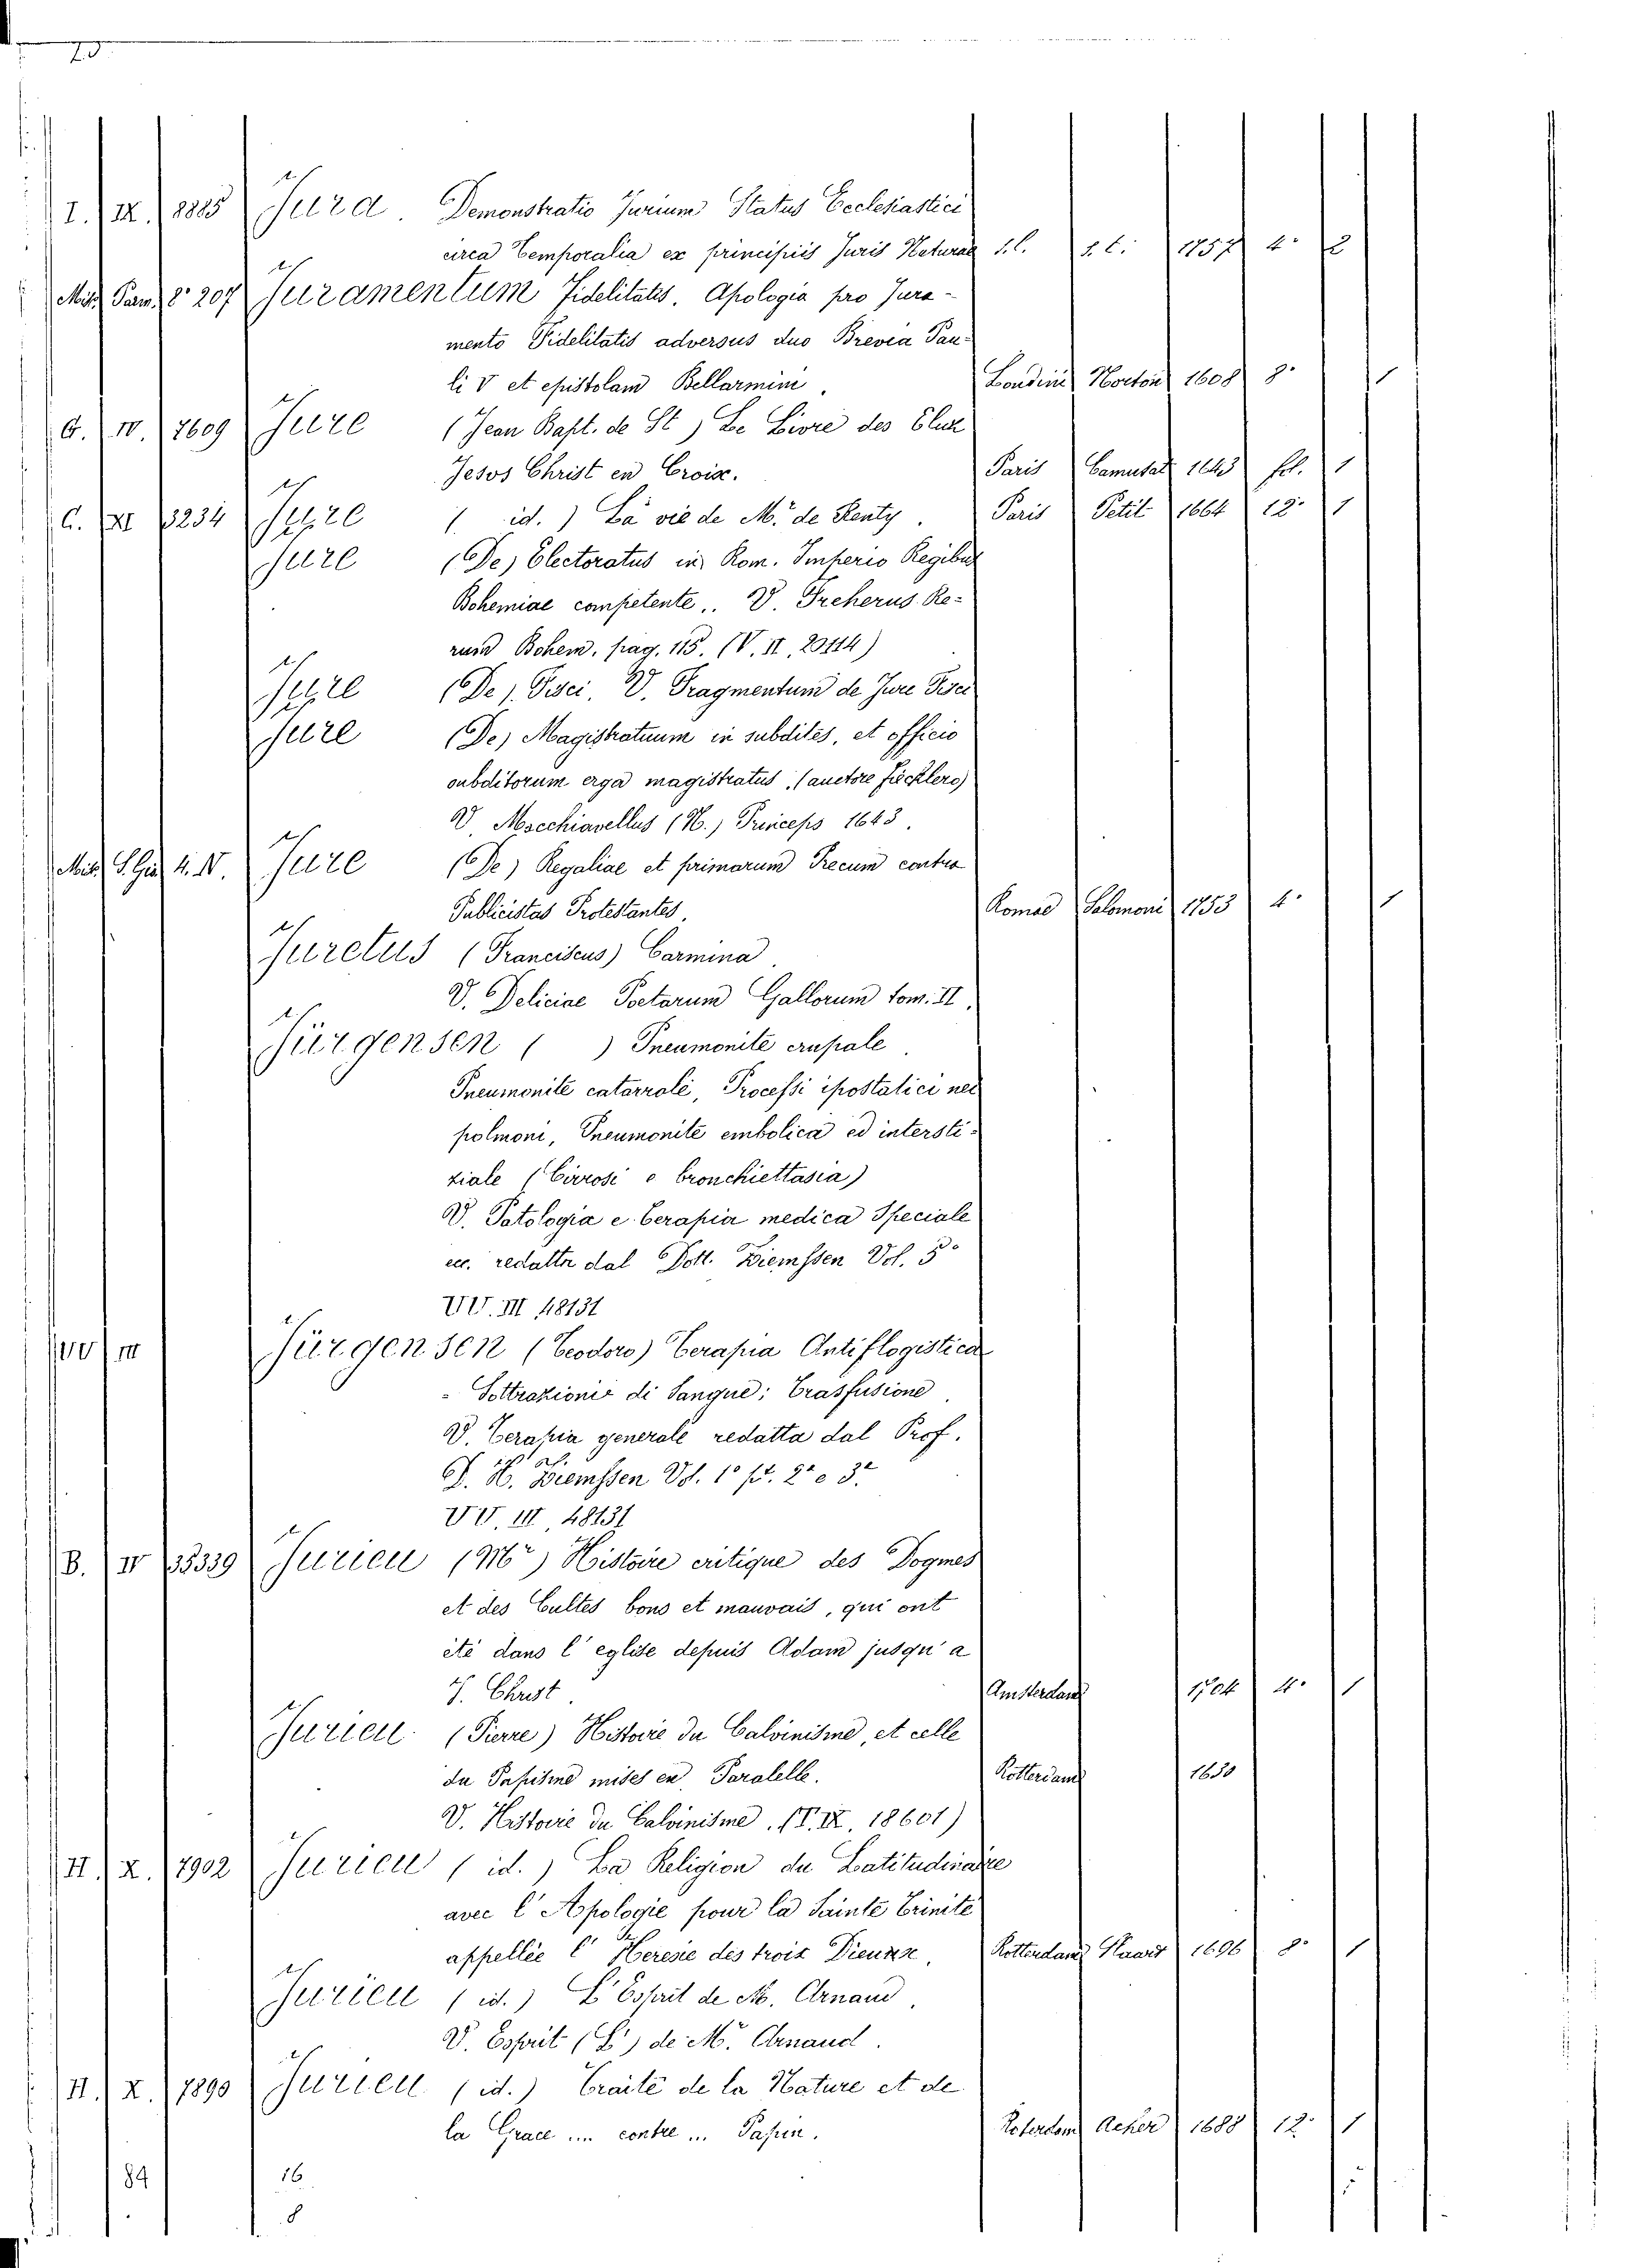 I. IX. 8885 Jura. Demonstratio Jurium Status Ecclesiastici
circa Temporalia ex principiis Juris Naturae s.l. s.t. 1757 4° 2
Misc. Pam. 8° 207 Juramentum Fidelitatis. Apologia pro Jura-
mento Fidelitatis adversus duo Brevia Pau-
li V et epistolam Bellarmini. Londini Norton 1608 8° 1
G. IV. 7609 Jure (Jean Bapt. de St) Le Livre des Elux
Jesos Christ en Croix. Paris Camusat 1643 fol. 1
C. XI 3234 Jure ( id. ) La vie de M.r de Renty. Paris Petit 1664 12° 1
Jure (De) Electoratus in Rom. Imperio Regibus
Bohemiae competente.. V. Freherus Re-
rum Bohem. pag. 115. (V. II, 20114)
Jure (De). Fisci. V. Fragmentum de Jure Fisci
Jure (De) Magistratuum in subdites, et officio
subditorum erga magistratus, (auctore Fücklero)
V. Macchiavellus (N.) Princeps 1643.
Misc. S. Giu 4. IV. Jure (De) Regaliae et primarum Precum contra
Publicistas Protestantes. Romae Salomoni 1753 4° 1
Juretus (Franciscus) Carmina.
V. Deliciae Poetarum Gallorum tom. II.
Jürgensen ( ) Pneumonite crupale.
Pneumonite catarrale, Processi ipostatici nei
polmoni, Pneumonite embolica ed intersti-
ziale (Cirrosi e bronchiettasia)
V. Patologia e Terapia medica Speciale
ecc. redatta dal Dott. Ziemssen Vol. 5°
VV. III 48131
VV III Jürgensen (Teodoro) Terapia Antiflogistica
- Sottrazione di Sangue; Trasfusione.
V. Terapia generale redatta dal Prof.
G. H. Ziemssen Vol. 1° pt. 2a e 3a
VV. III, 48131
B. IV 35339 Jurieu (Mr) Histoire critique des Dogmes
et des Cultes bons et mauvais, qui ont
été dans l'eglise depuis Adam jusqu'a
J. Christ. Amsterdam 1704 4° 1
Jurieu (Pierre) Histoire du Calvinisme, et celle
du Papisme mises en Paralelle. Rotterdam 1680
V. Histoire du Calvinisme. (T. IX. 18601)
II. X. 7902 Jurieu ( id. ) La Religion du Latitudinaire
avec l'Apologie pour la Sainte Trinité
appellée l'Heresie des troix Dieuxse. Rotterdam 1696 8° 1
Jurieu ( id. ) L'Esprit de M. Arnaud.
V. Esprit (L') de M.r Arnaud.
II. X. 7890 Jurieu ( id. ) Traité de la Nature et de
la Grace .... contre ... Papin. Roterdam Acher 1688 12° 1
84 16
8